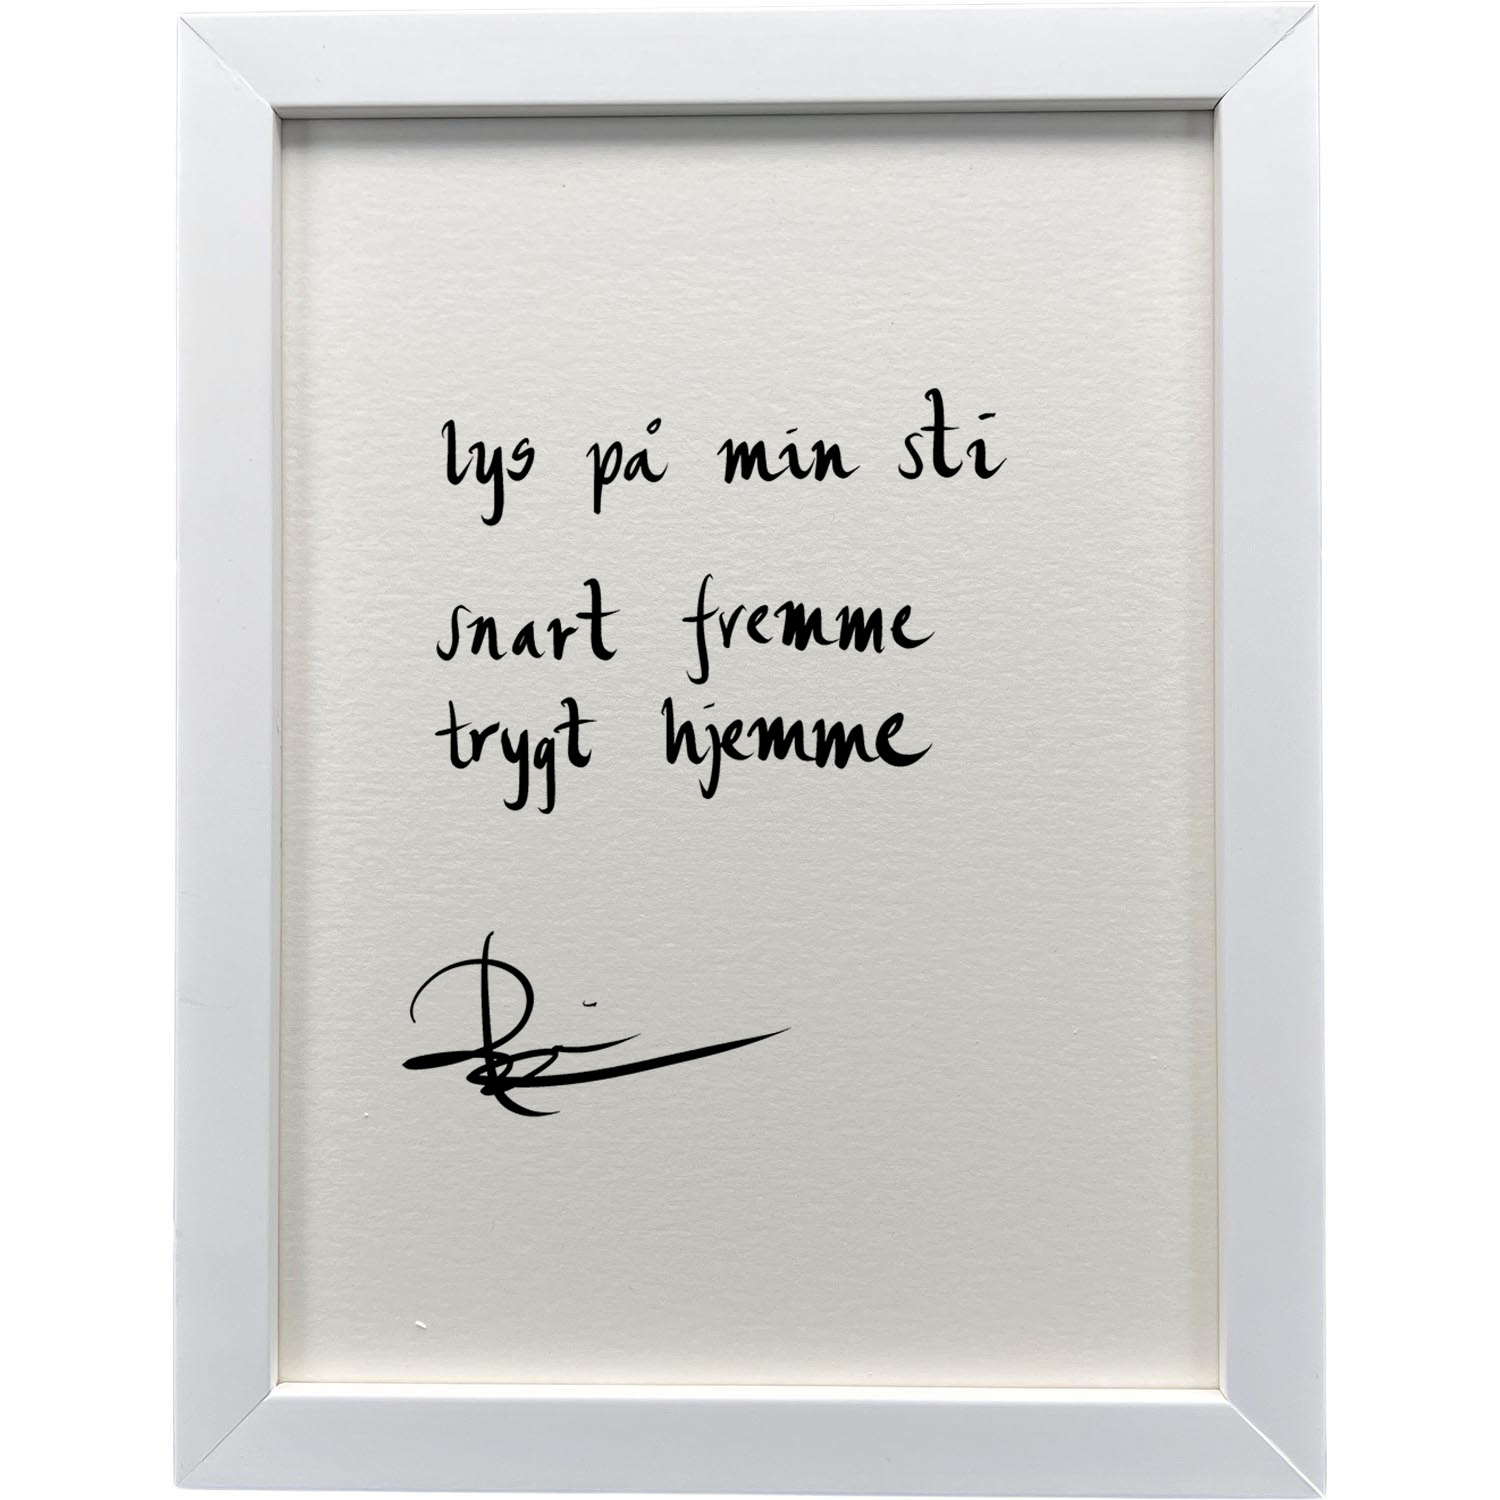 lys på min sti
snart fremme
trygt hjemme